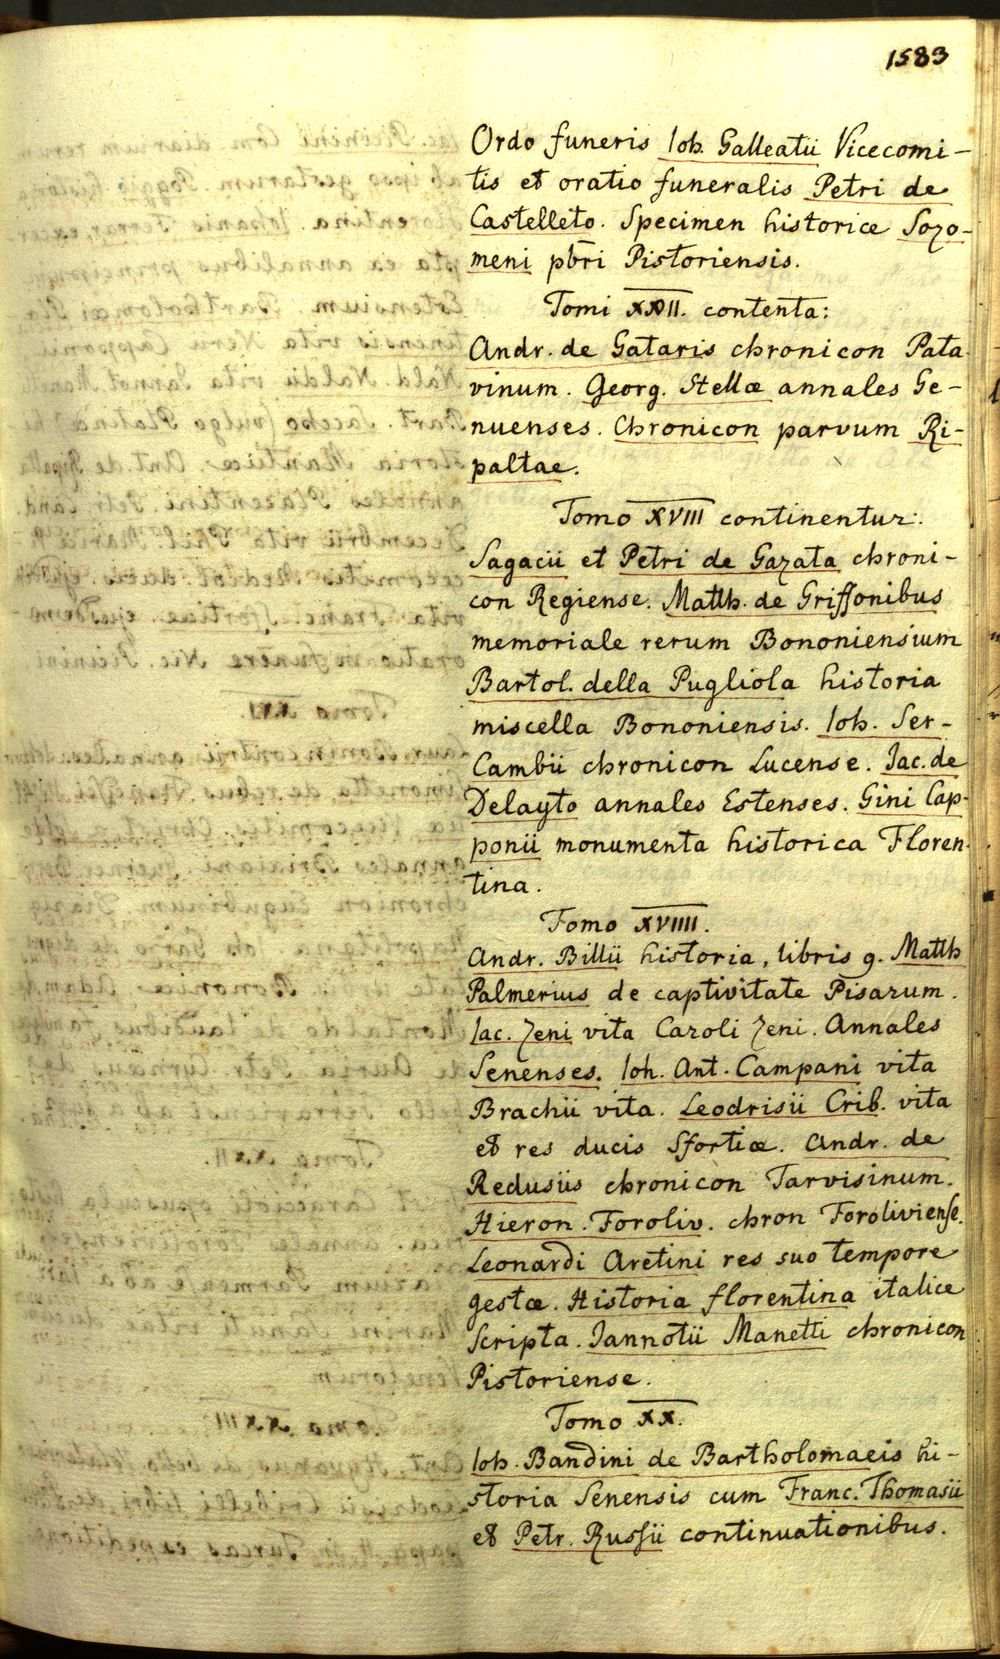 1583
Ordo funeris Ioh. Galleatii Vicecomi-
tis et oratio funeralis Petri de
Castelleto. Specimen historice Sozo-
meni pbri Pistoriensis.
Tomi XVII. contenta:
Andr. de Gataris chronicon Pata-
vinum. Georg. Stellæ annales Ge-
nuenses. Chronicon parvum Ri-
paltae.
Tomo XVIII continentur:
Sagacii et Petri de Gazata chroni-
con Regiense. Matth. de Griffonibus
memoriale rerum Bononiensium
Bartol. della Pugliola historia
miscella Bononiensis. Ioh. Ser-
Cambii chronicon Lucense. Iac. de
Delayto annales Estenses. Gini Cap-
ponii monumenta historica Floren-
tina.
Tomo XVIIII.
Andr. Billii historia, libris 9. Matth
Palmerius de captivitate Pisarum.
Iac. Zeni vita Caroli Zeni. Annales
Senenses. Ioh. Ant. Campani vita
Brachii vita. Leodrisii Crib. vita
et res ducis Sfortiæ. Andr. de
Redusiis chronicon Tarvisinum.
Hieron. Foroliv. chron Foroliviense.
Leonardi Aretini res suo tempore
gestæ. Historia florentina italice
scripta. Iannotii Manetti chronicon
Pistoriense.
Tomo XX.
Ioh. Bandini de Bartholomaeis hi-
storia Senensis cum Franc. Thomasii
et Petr. Russii continuationibus.